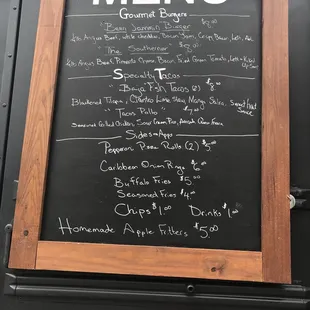 MENU
Gourmet Burgers
Burger $9.00
1/2 lb Angus Beef, White cheddar, Bacon Jam, Crispy Onion,
"The Southerner" $9.00
1/2 lb Angus Beef, Pimento Cheese, Bacon, Fried Green Tomato,
Specialty Tacos
"Baja" Fish Tacos (2) $8.
Blackened Tilapia, Cilantro Lime Slaw, Mango Salsa, Sweet Heat
Sauce
Tacos Pollo
Sides + Apps
Pepperoni Pizza Rolls (2) $5
Caribbean Onion Rings $6.00
Buffalo Fries $5.00
Seasoned Fries $4.00
Chips $1.00 Drinks $1.00
Homemade Apple Fritters $5.00